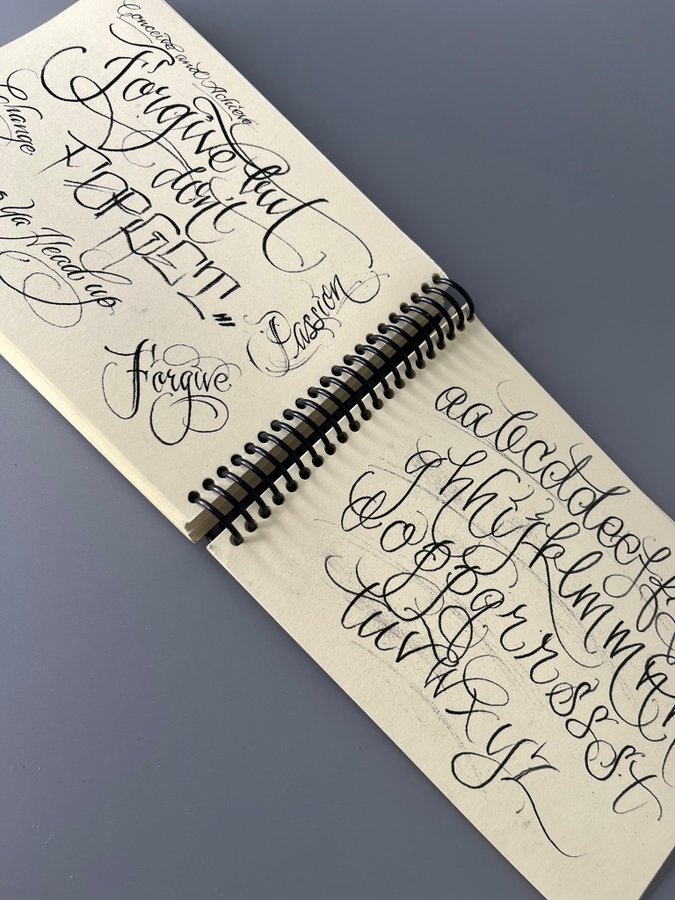 Conceive and Achieve
Forgive but
don't
FORGET"
Change
Ya Head up
Passion
Forgive
aabcddeef
ghhijklmm
oopqrrss
tuvwxyz